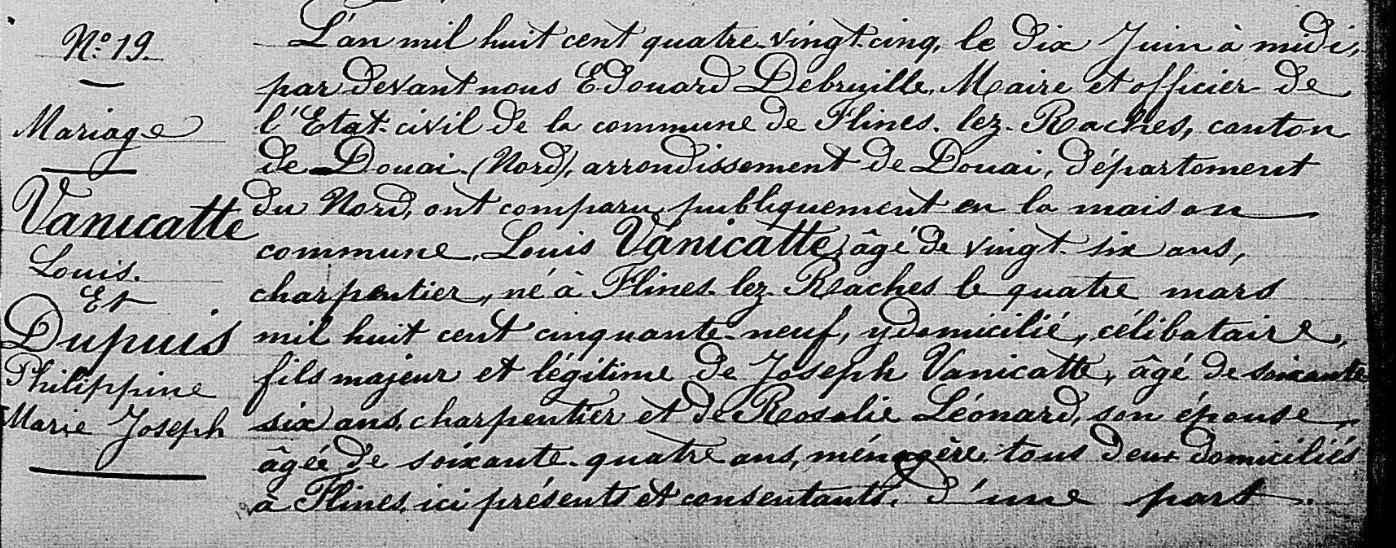 N.° 19.
Mariage
Vanicatte
Louis.
Et
Dupuis
Philippine
Marie Joseph
L'an mil huit cent quatre-vingt-cinq, le dix Juin à midi,
par devant nous Edouard Debruille, Maire et officier de
l'Etat-civil de la commune de Flines-lez-Raches, canton
de Douai-(Nord), arrondissement de Douai, département
du Nord, ont comparu publiquement en la maison
commune, Louis Vanicatte, âgé de vingt-six ans,
charpentier, né à Flines-lez-Raches le quatre mars
mil huit cent cinquante-neuf, y domicilié, célibataire,
fils majeur et légitime de Joseph Vanicatte, âgé de soixante
six ans, charpentier et de Rosalie Léonard, son épouse,
âgée de soixante-quatre ans, ménagère, tous deux domiciliés
à Flines, ici présents et consentants, d'une part.